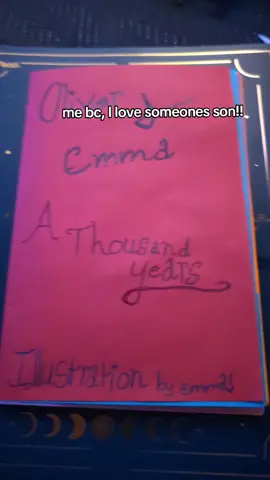 Oliver y
me bc, I love someones son!!
Emma
A Thousand
years
Illustration by emma